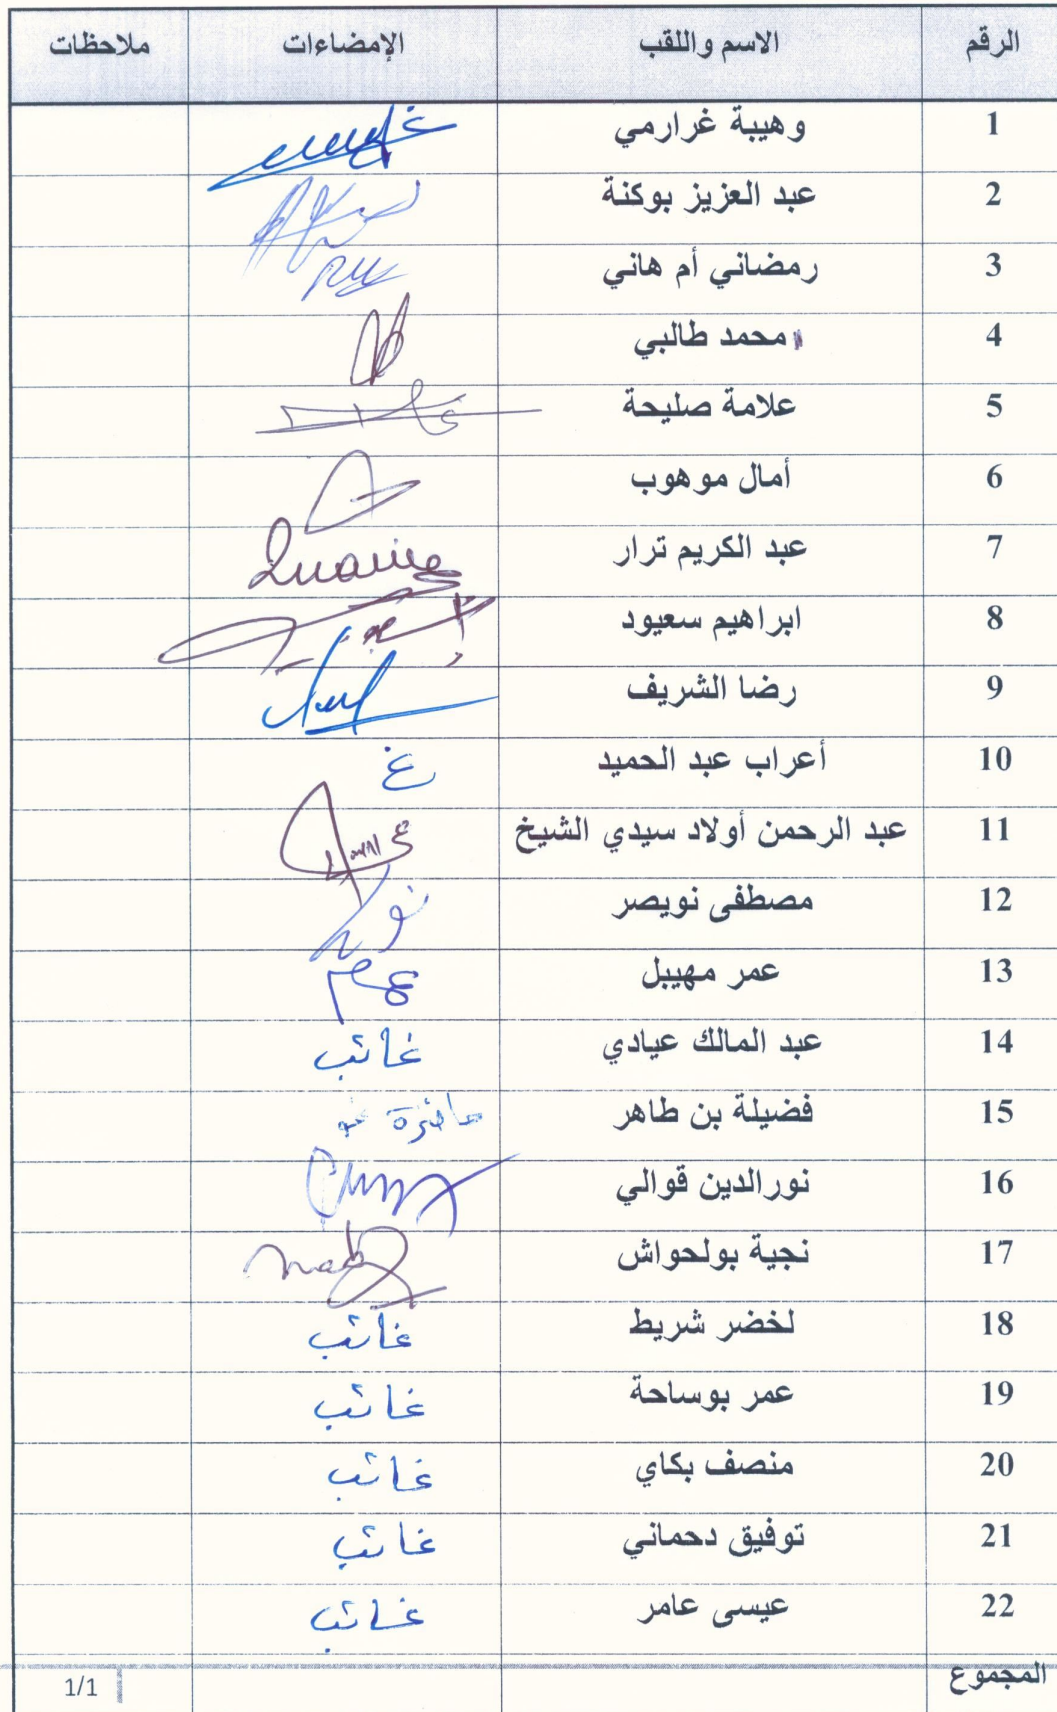 الرقم الاسم واللقب الإمضاءات ملاحظات
1 وهيبة غرارمي
2 عبد العزيز بوكنة
3 رمضاني أم هاني
4 محمد طالبي
5 علامة صليحة
6 أمال موهوب
7 عبد الكريم ترار
8 ابراهيم سعيود
9 رضا الشريف
10 أعراب عبد الحميد غ
11 عبد الرحمن أولاد سيدي الشيخ
12 مصطفى نويصر
13 عمر مهيبل
14 عبد المالك عيادي غائب
15 فضيلة بن طاهر
16 نورالدين قوالي
17 نجية بولحواش
18 لخضر شريط غائب
19 عمر بوساحة غائب
20 منصف بكاي غائب
21 توفيق دحماني غائب
22 عيسى عامر غائب
المجموع
1/1